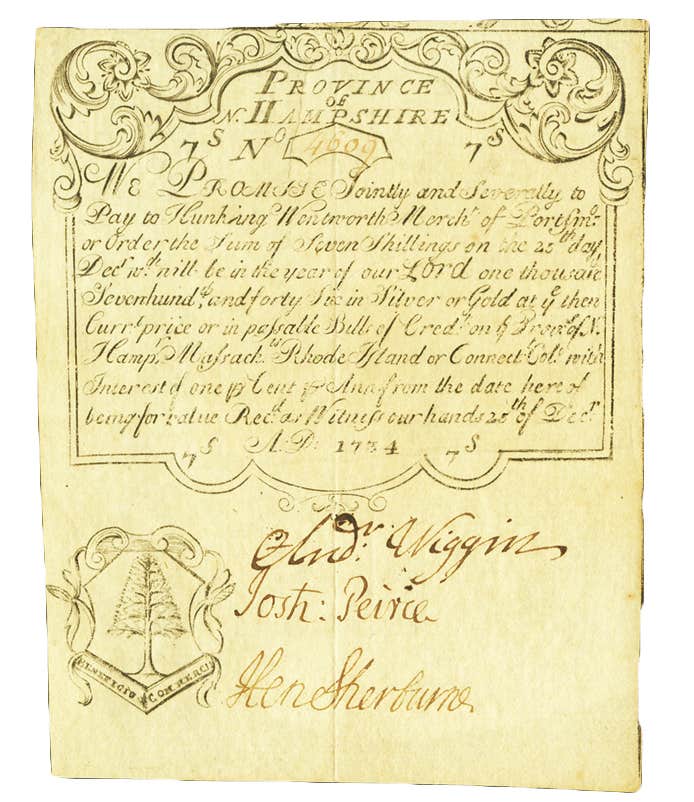 PROVINCE
OF
N. HAMPSHIRE
7S No 4609 7S
WE PROMISE Jointly and Severally to
Pay to Hunking Wentworth Merch.t of Portsmo.
or Order the Sum of Seven Shillings on the 25th day
Decr. wch. will be in the year of our LORD one thousand
Sevenhundd. and forty Six in Silver or Gold at ye then
Currt. price or in passable Bills of Credt. on ye Prove. of N.
Hampr. Massachts. Rhode Island or Connectt. Cols. with
Interest of one pr Cent pr Ann from the date here of
being for value Recd. as Witness our hands 25th of Decr.
7S A: D: 1734 7S
Andr. Wiggin
Josh: Peirce
Hen Sherburne
BENEFICIO COMMERCII